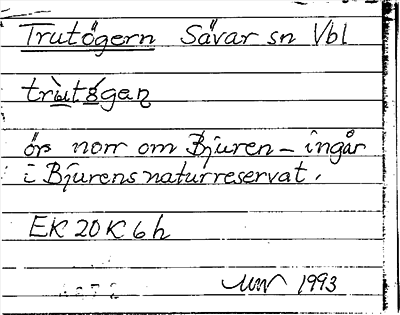 Trutögern Sävar sn Vbl
trùtǿgaɳ
ör norr om Bjuren – ingår
i Bjurens naturreservat.
EK 20 K 6 h
1993